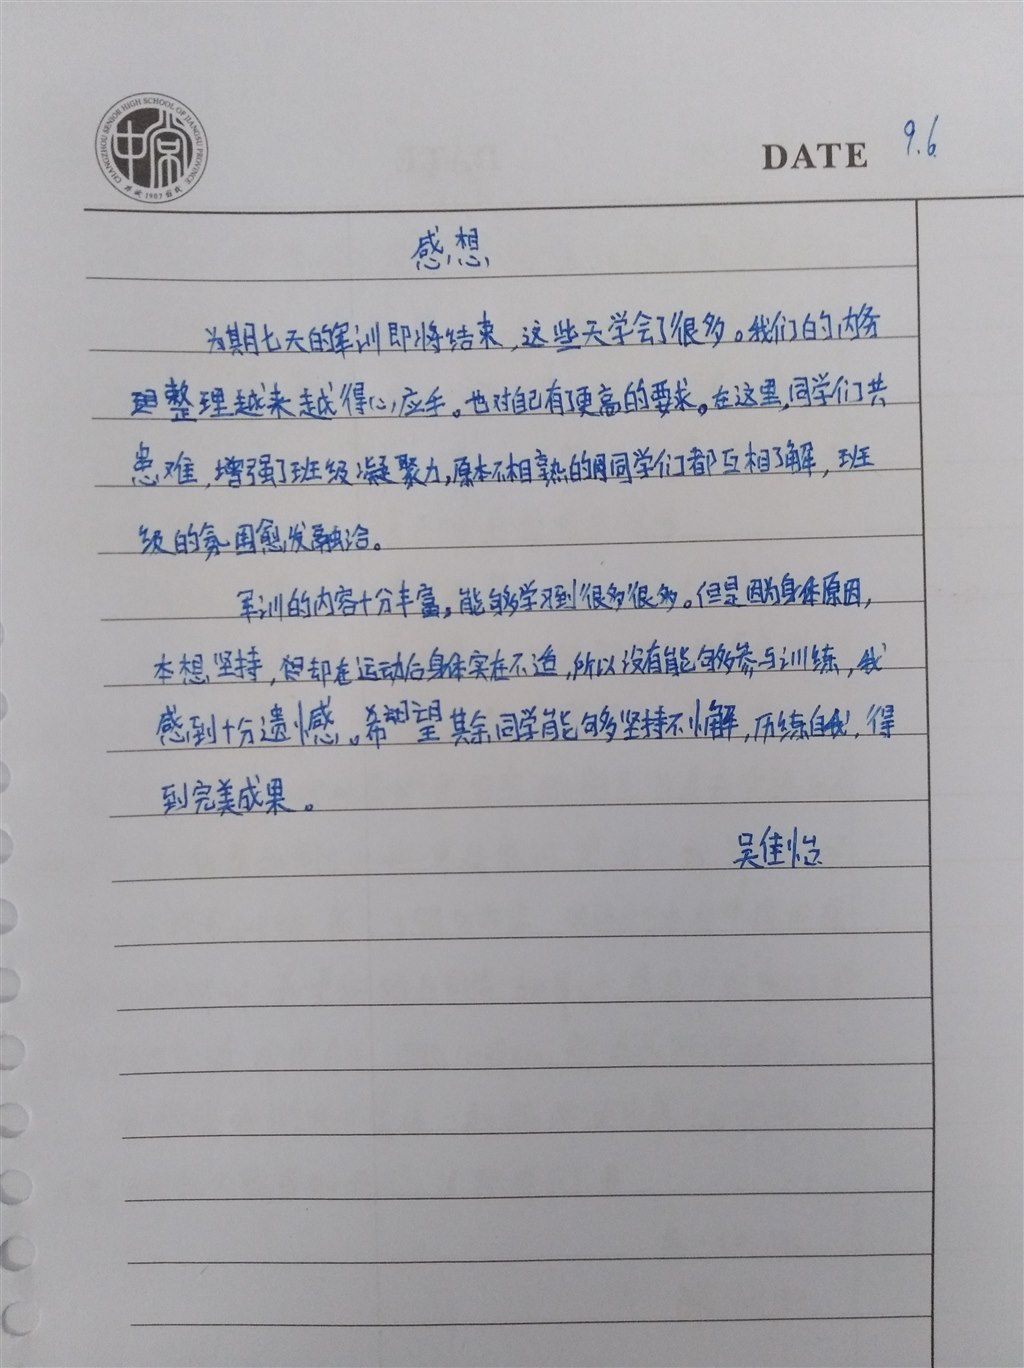 CHANGZHOU SENIOR HIGH SCHOOL OF JIANGSU PROVINCE
1907
DATE 9.6
感想
为期七天的军训即将结束，这些天学会了很多。我们的内务
整理越来越得心应手。也对自己有了更高的要求。在这里，同学们共
患难，增强了班级凝聚力，原本不相熟的同学们都互相了解，班
级的氛围愈发融洽。
军训的内容十分丰富，能够学习到很多很多。但是因为身体原因，
本想坚持，但却在运动后身体实在不适，所以没有能够参与训练，我
感到十分遗憾。希望其余同学能够坚持不懈，历练自我，得
到完美成果。
吴佳怡